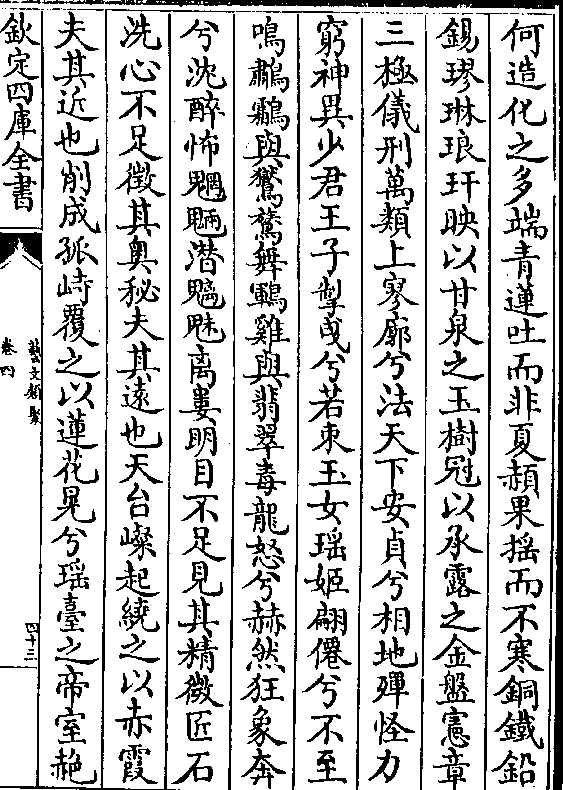 何造化之多端青蓮吐而非夏頳果揺而不寒銅鐵鉛
錫璆琳琅玕映以甘泉之玉樹冠以承露之金盤憲章
三極儀刑萬類上寥廓兮法天下安貞兮相地殫怪力
窮神異少君王子掣曵兮若来玉女瑶姬翩僊兮不至
鳴鸝鸘與鷲鶖舞鶤雞與翡翠毒龍怒兮赫然狂象奔
兮沈醉怖魍魎潜魑魅离婁明目不足見其精微匠石
洗心不足徴其奥秘夫其逺也天台嵥起繞之以赤霞
夫其近也削成孤峙覆之以蓮花晃兮瑶臺之帝室赩
欽定四庫全書
藝文類聚
卷四
四十三